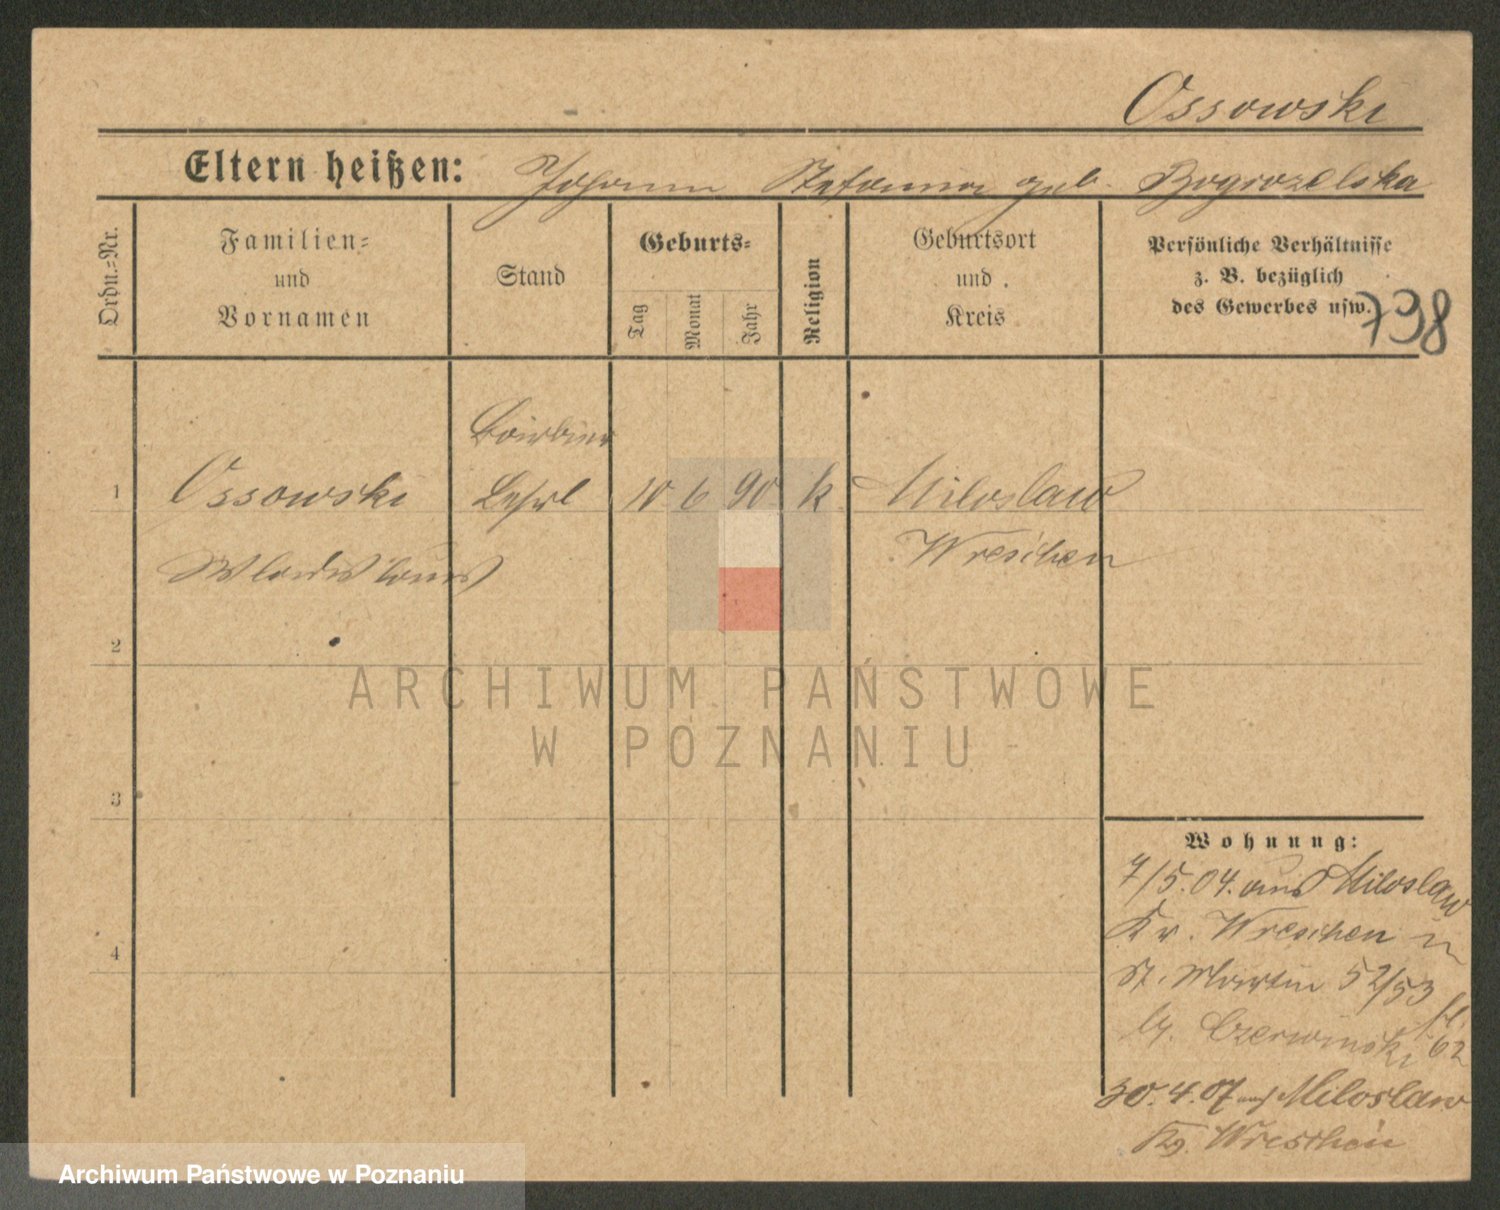 Ossowski
Eltern heißen: Johann Stefanna geb. Bogrozelska
Ordn.-Nr.
Familien-
und
Vornamen
Stand
Geburts-
Tag
Monat
Jahr
Religion
Geburtsort
und
Kreis
Persönliche Verhältnisse
z. B. bezüglich
des Gewerbes usw.
798
Barbier
1 Ossowski Lehrl 10 6 90 k Miloslaw
Wladislaus Wreschen
2
3
4
Wohnung:
4/5.04. aus Miloslaw
Kr. Wreschen in
St. Martin 52/53
Czerwinski 62
30.4.07 nach Miloslaw
Wreschen
ARCHIWUM PAŃSTWOWE
W POZNANIU
Archiwum Państwowe w Poznaniu